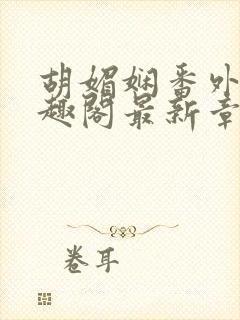 胡媚娴番外
趣阁最新章
卷耳